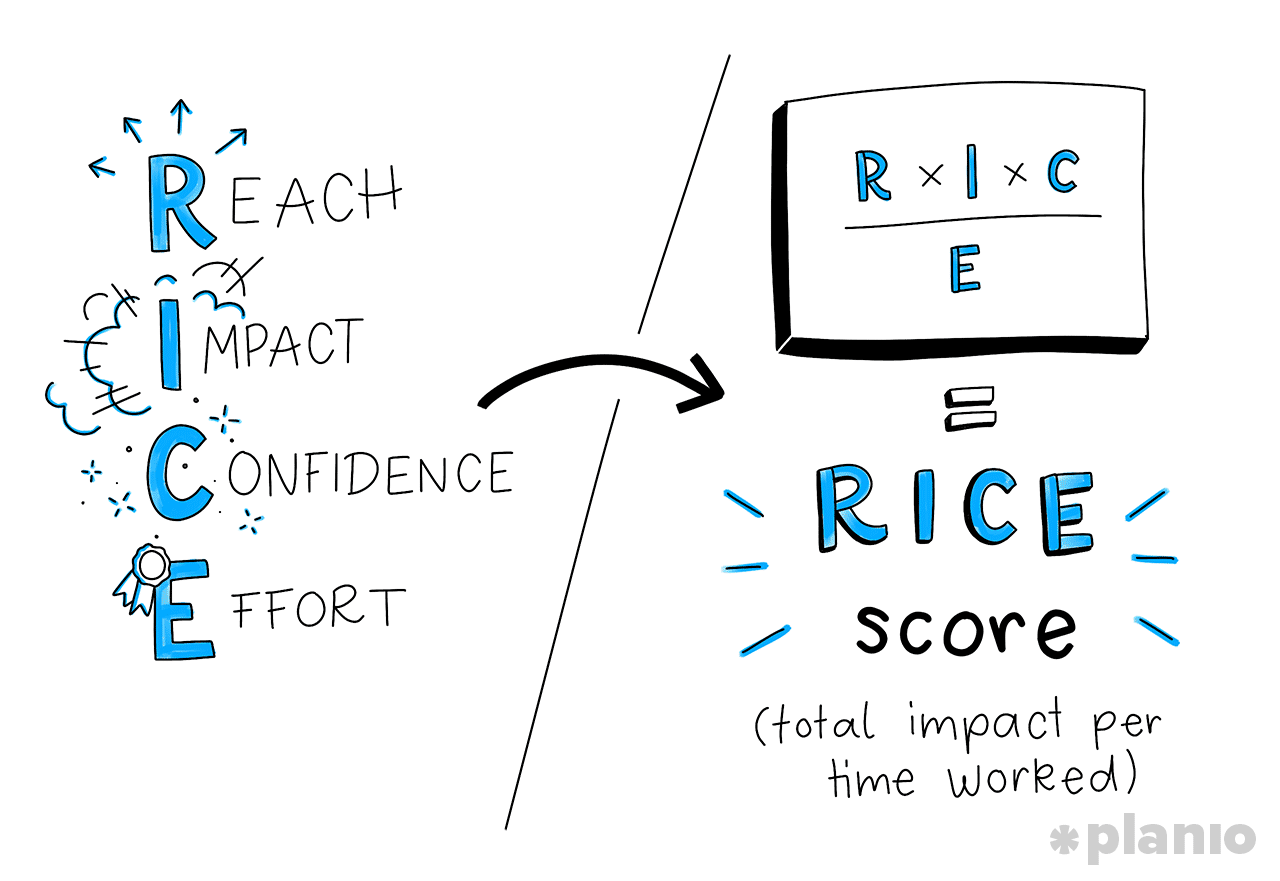 REACH
IMPACT
CONFIDENCE
EFFORT
R × I × C
E
=
RICE
score
(total impact per
time worked)
planio